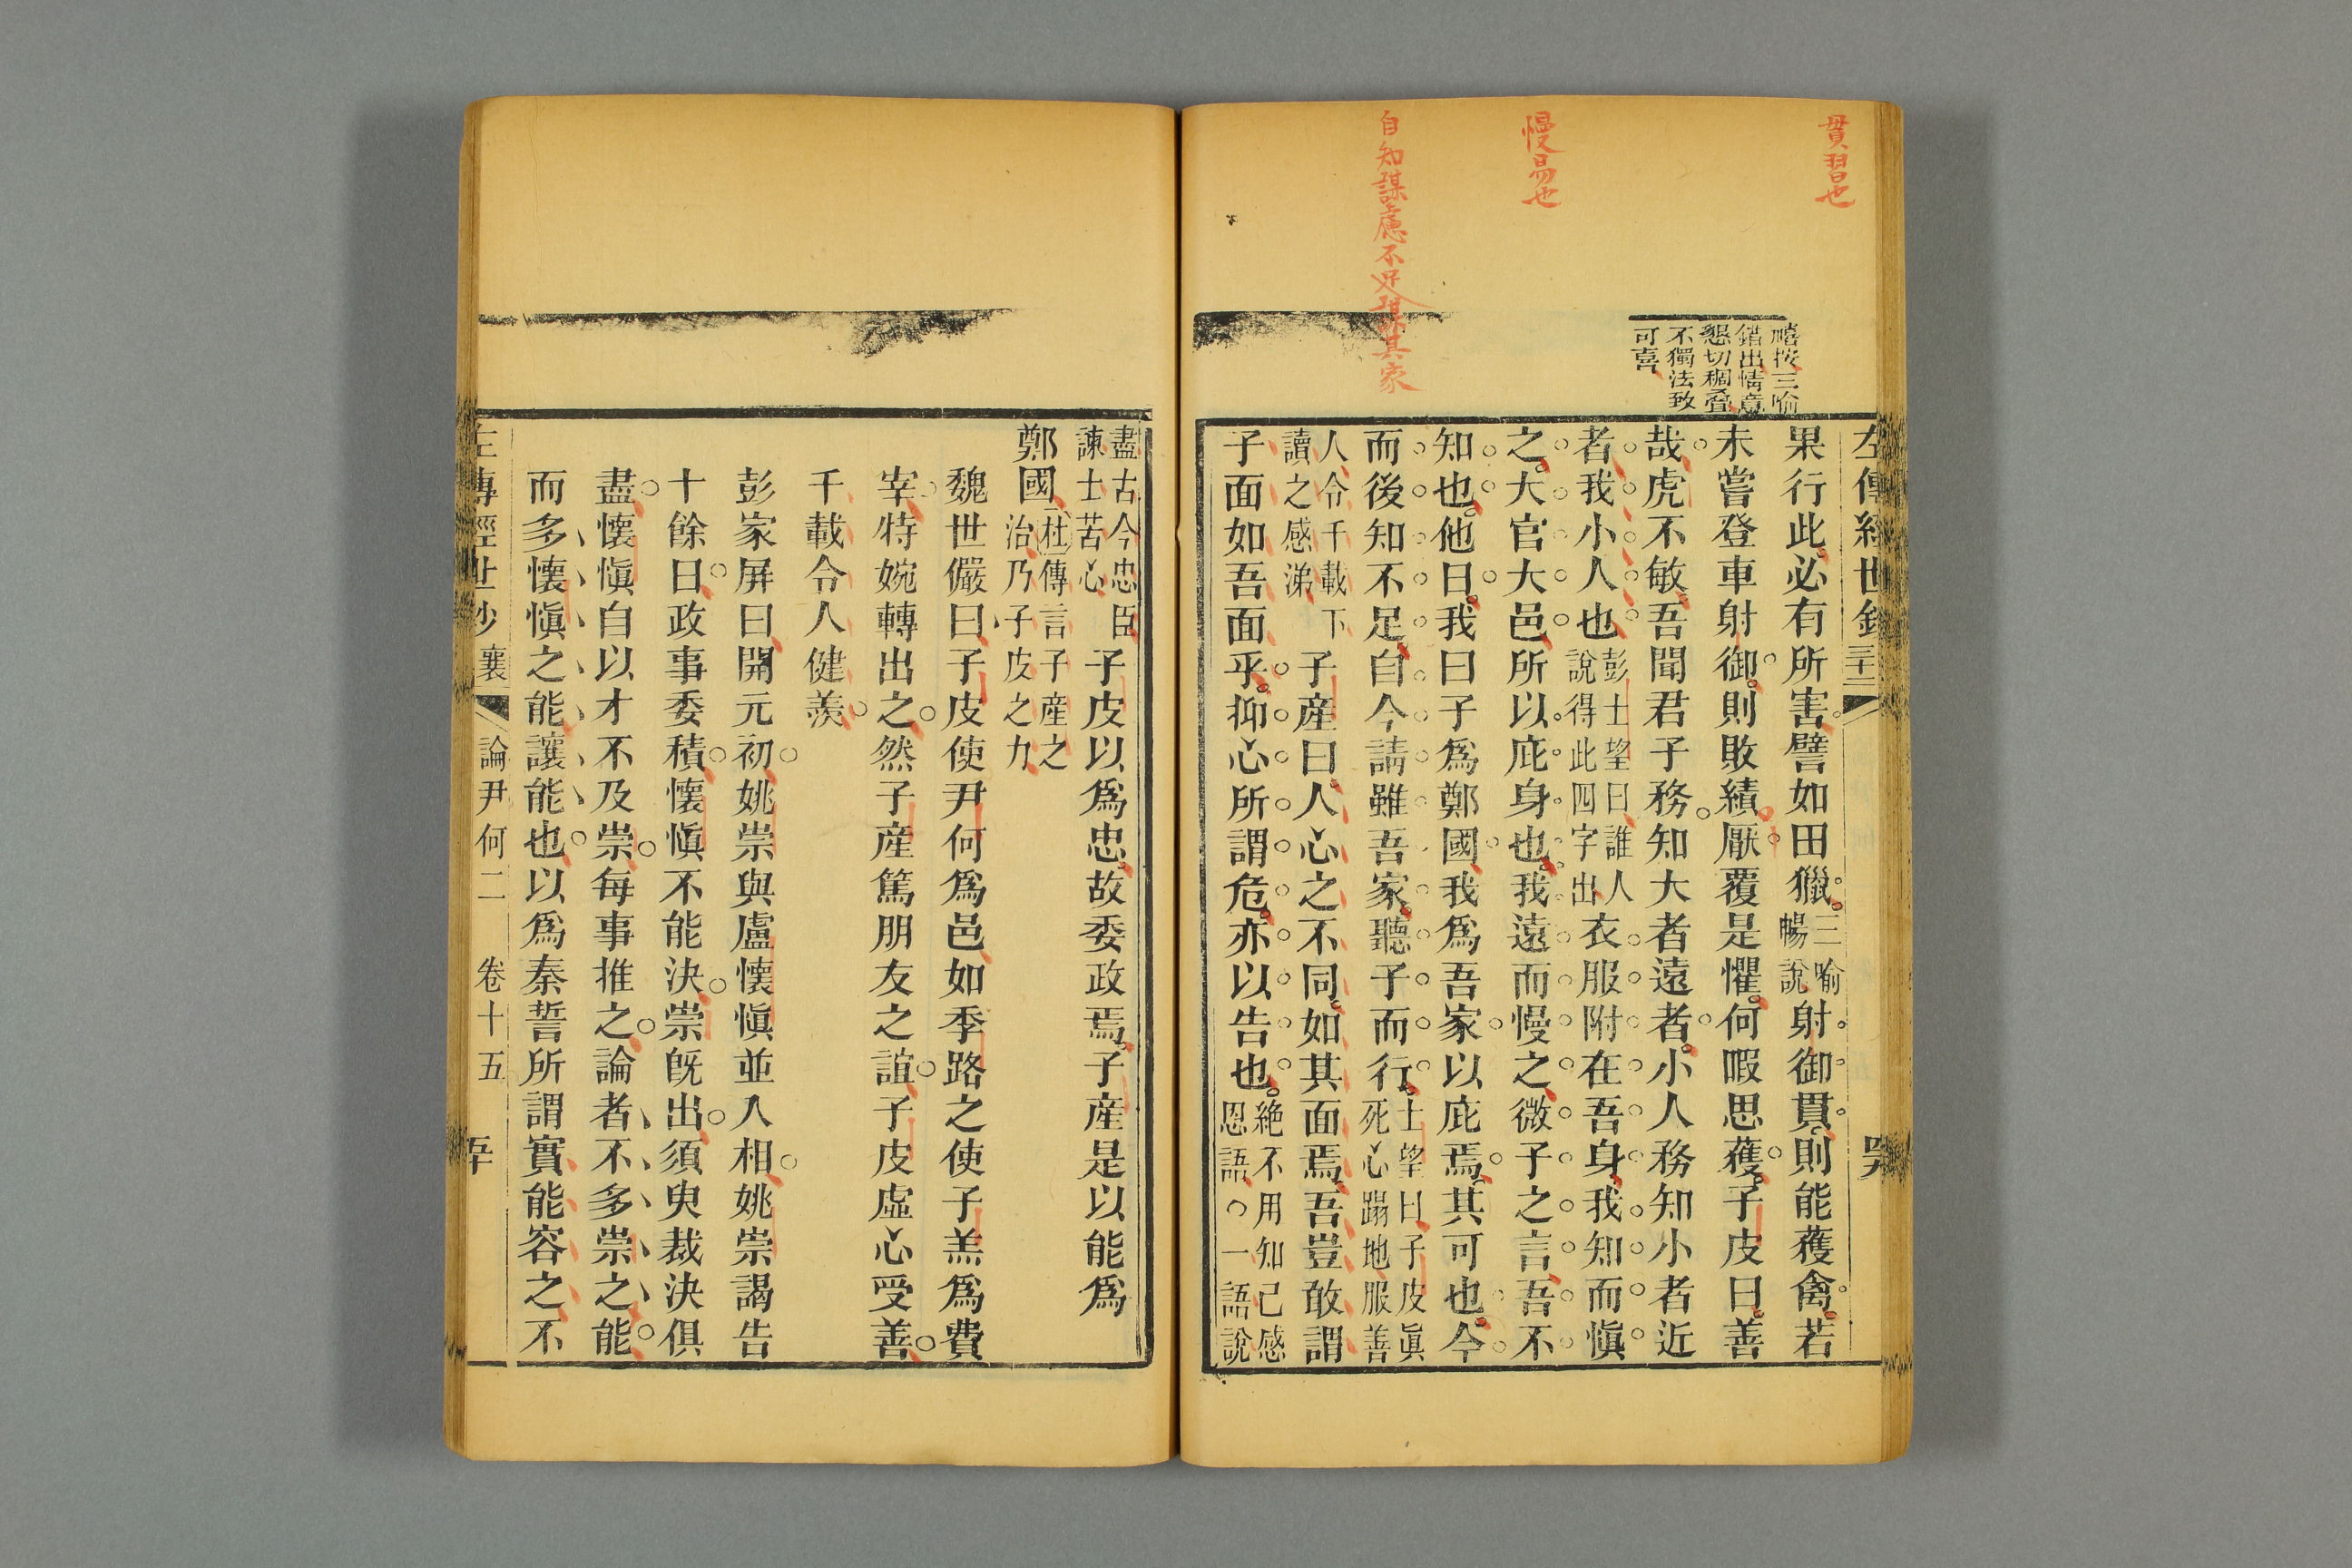 貫習也
慢易也
自知謀慮不足謀其家
禧按三喻
錯出情意
懇切稠疊
不獨法致
可喜
左傳經世鈔
果行此必有所害譬如田獵三喻暢說射御貫則能獲禽若
未嘗登車射御則敗績厭覆是懼何暇思獲子皮曰善
哉虎不敏吾聞君子務知大者遠者小人務知小者近
者我小人也彭士望曰誰人說得此四字出衣服附在吾身我知而愼
之大官大邑所以庇身也我遠而慢之微子之言吾不
知也他日我曰子爲鄭國我爲吾家以庇焉其可也今
而後知不足自今請雖吾家聽子而行士望曰子皮眞死心蹋地服善
人令千載下讀之感涕子產曰人心之不同如其面焉吾豈敢謂
子面如吾面乎抑心所謂危亦以告也絶不用知己感恩語○一語說
盡古今忠臣諫士苦心子皮以爲忠故委政焉子產是以能爲
鄭國杜傳言子產之治乃子皮之力
魏世儼曰子皮使尹何爲邑如季路之使子羔爲費
宰特婉轉出之然子產篤朋友之誼子皮虛心受善
千載令人健羨
彭家屏曰開元初姚崇與盧懷愼並人相姚崇謁告
十餘日政事委積懷愼不能決崇旣出須臾裁決俱
盡懷愼自以才不及崇每事推之論者不多崇之能
而多懷愼之能讓能也以爲秦誓所謂實能容之不
左傳經世鈔 襄 論尹何二 卷十五 五十